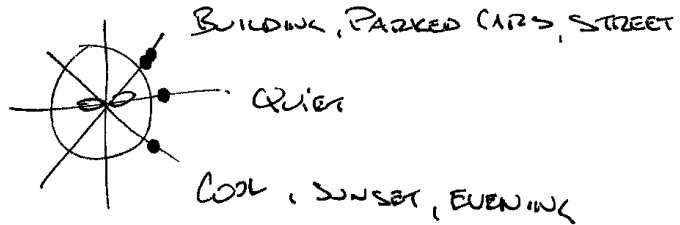 BUILDING, PARKED CARS, STREET
QUIET
COOL, SUNSET, EVENING